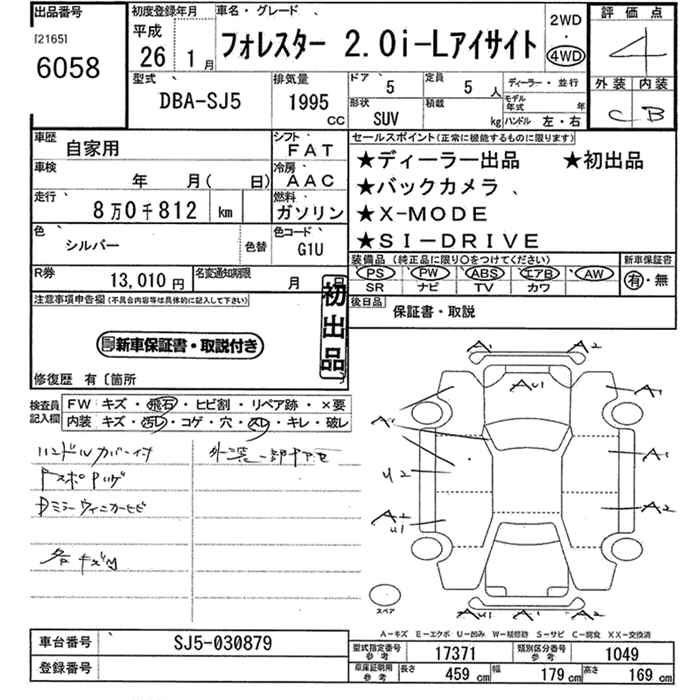 出品番号
[2165]
6058
初度登録年月
平成
26 1月
車名・グレード
フォレスター 2.0i-Lアイサイト
2WD
・
4WD
評価点
4
外装 内装
C B
型式
DBA-SJ5
排気量
1995 CC
ドア 5
定員 5 人
形状 SUV
積載 kg
ディーラー・並行
モデル年式 年
ハンドル 左・右
車歴 自家用
シフト FAT
車検 年 月( 日)
冷房 AAC
走行 8万0千812 km
燃料 ガソリン
色 シルバー 色替
色コード G1U
R券 13,010円
名変通知期限 月 日
セールスポイント(正常に機能するものに限ります)
★ディーラー出品 ★初出品
★バックカメラ
★X-MODE
★SI-DRIVE
装備品(純正品に限り○をつけてください)
PS PW ABS エアB AW
SR ナビ TV カワ
新車保証書
有・無
後日品
保証書・取説
注意事項申告欄(不具合内容等は具体的に記入して下さい)
新車保証書・取説付き
初出品
修復歴 有〔箇所 〕
検査員記入欄
FW キズ・飛石・ヒビ割・リペア跡・×要
内装 キズ・汚レ・コゲ・穴・スレ・キレ・破レ
ハンドルカバー付
外装一部
Dミラーウィンカーヒビ
各キズ凹
A1 A2
AU1
A1
A1
U2
A2
U1
A2
AU1 A1 A2
スペア
A-キズ E-エクボ U-凹み W-補修跡 S-サビ C-腐食 XX-交換済
車台番号 SJ5-030879
登録番号
型式指定番号 参考 17371
類別区分番号 参考 1049
車庫証明用 参考 長さ 459 cm 幅 179 cm 高さ 169 cm